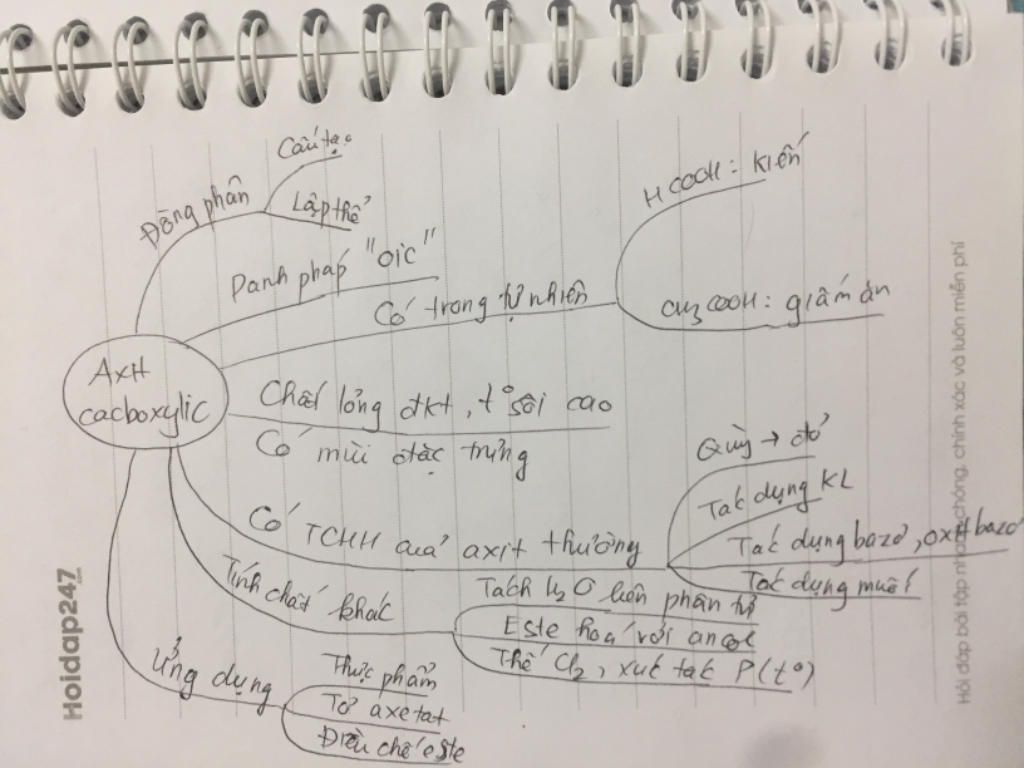 Cấu tạo
Đồng phân
Lập thể
Danh pháp "oic"
Có trong tự nhiên
HCOOH: kiến
CH3COOH: giấm ăn
Axit
cacboxylic
Chất lỏng đkt, t° sôi cao
Có mùi đặc trưng
Có TCHH quả axit thường
Quỳ → đỏ
Tác dụng KL
Tác dụng bazơ, oxit bazơ
Tác dụng muối
Tính chất khác
Tách H2O liên phân tử
Este hoá với ancol
Thế Cl2, xuc tác P(t°)
Ứng dụng
Thực phẩm
Tơ axetat
Điều chế este
Hoidap247
Hỏi đáp bài tập nhanh chóng, chính xác và luôn miễn phí